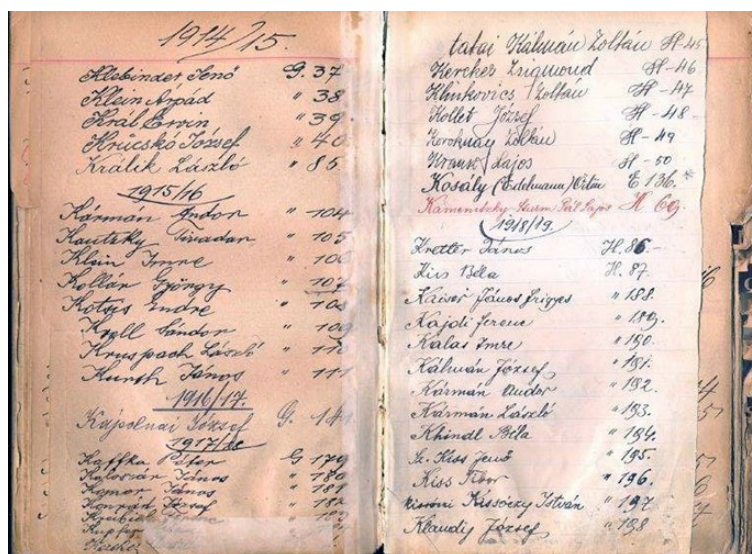 1914/15.
Klebinder Jenő G. 37
Klein Árpád " 38
Král Ervin " 39
Krucskó József " 40
Králik László " 85
1915/16
Kármán Andor " 104
Kautzky Tivadar " 105
Klein Imre " 106
Kollár György " 107
Kotsis Endre " 108
Kroll Sándor " 109
Kruspach László " 110
Kunth János " 111
1916/17.
Kápolnai József G. 141
1917/18
Kaffka Péter G 179
János " 180
Komor János " 181
Konrád József " 182
tatai Kálmán Zoltán H-45
Kerekes Zsigmond H-46
Klinkovics Zoltán H-47
Kollet József H-48
Koroknay Zoltán H-49
Kraus Lajos H-50
Kosály (Edelmann) Ottm E 136.*
Kamenitzky Pál Lajos H 69.
1918/19.
Kretter János H. 86-
Kiss Béla H. 87.
Kaiser János Frigyes " 188.
Kajdi Ferenc " 189.
Kalas Imre " 190.
Kálmán József " 191.
Kármán Andor " 192.
Kármán László " 193.
Khindl Béla " 194.
Sz. Kiss Jenő " 195.
Kiss Tibor " 196.
Kissóczy István " 197
Klaudiy József " 198